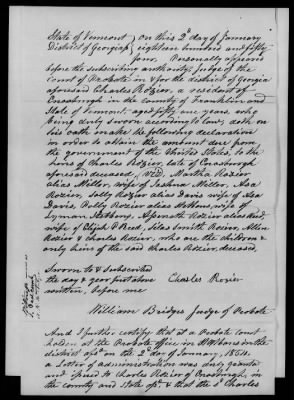 State of Vermont } on this 2d day of January
District of Georgia } eighteen hundred and fifty
four. Personally appeared
before the subscribing authority, Judge of the
Court of Probate in & for the district of Georgia
aforesaid Charles Rozier, a resident of
Enosburgh in the county of Franklin and
State of Vermont, aged fifty one years, who
being duly sworn according to law, doth on
his oath make the following declaration
in order to obtain the amount due from
the government of the United States, to the
heirs of Charles Rozier, late of Enosburgh
aforesaid deceased, Viz. Martha Rozier
alias Miller, wife of Miller, Asa
Rozier, Sally Rozier alias Davis wife of
Davis, Polly Rozier alias Stebbins, wife of
Lyman Stebbins, Asenath Rozier alias Reed
wife of Elijah P Reed, Silas Smith Rozier, Allen
Rozier & Charles Rozier, who are the children &
only heirs of the said Charles Rozier, deceased,
Sworn to & Subscribed
the day & year first above } Charles Rozier
written, before me
William Bridges Judge of Probate
And I further certify that at a Probate Court
holden at the Probate office in St Albans in the
district afsd on the 2d day of January, 1854,
a letter of administration was duly granted
and issued to Charles Rozier of Enosburgh, in
the county and State afsd & that the sd Charles